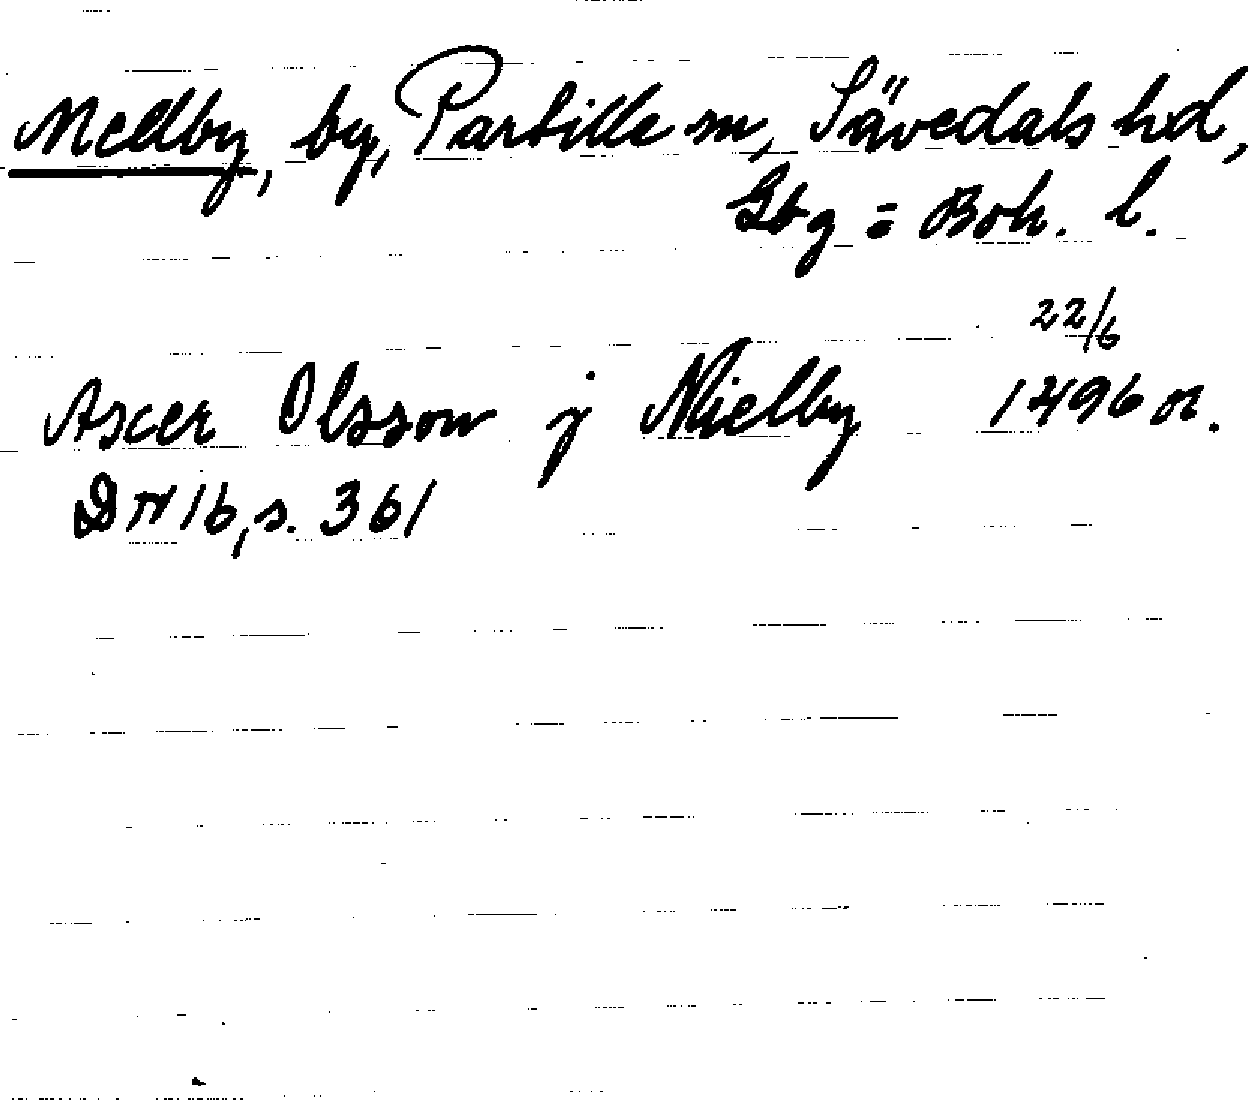 Mellby, by, Partille sn, Sävedals hd,
Gbg = Boh. l.
22/6
Ascer Olsson j Mielby 1496 or.
DN 16, s. 361